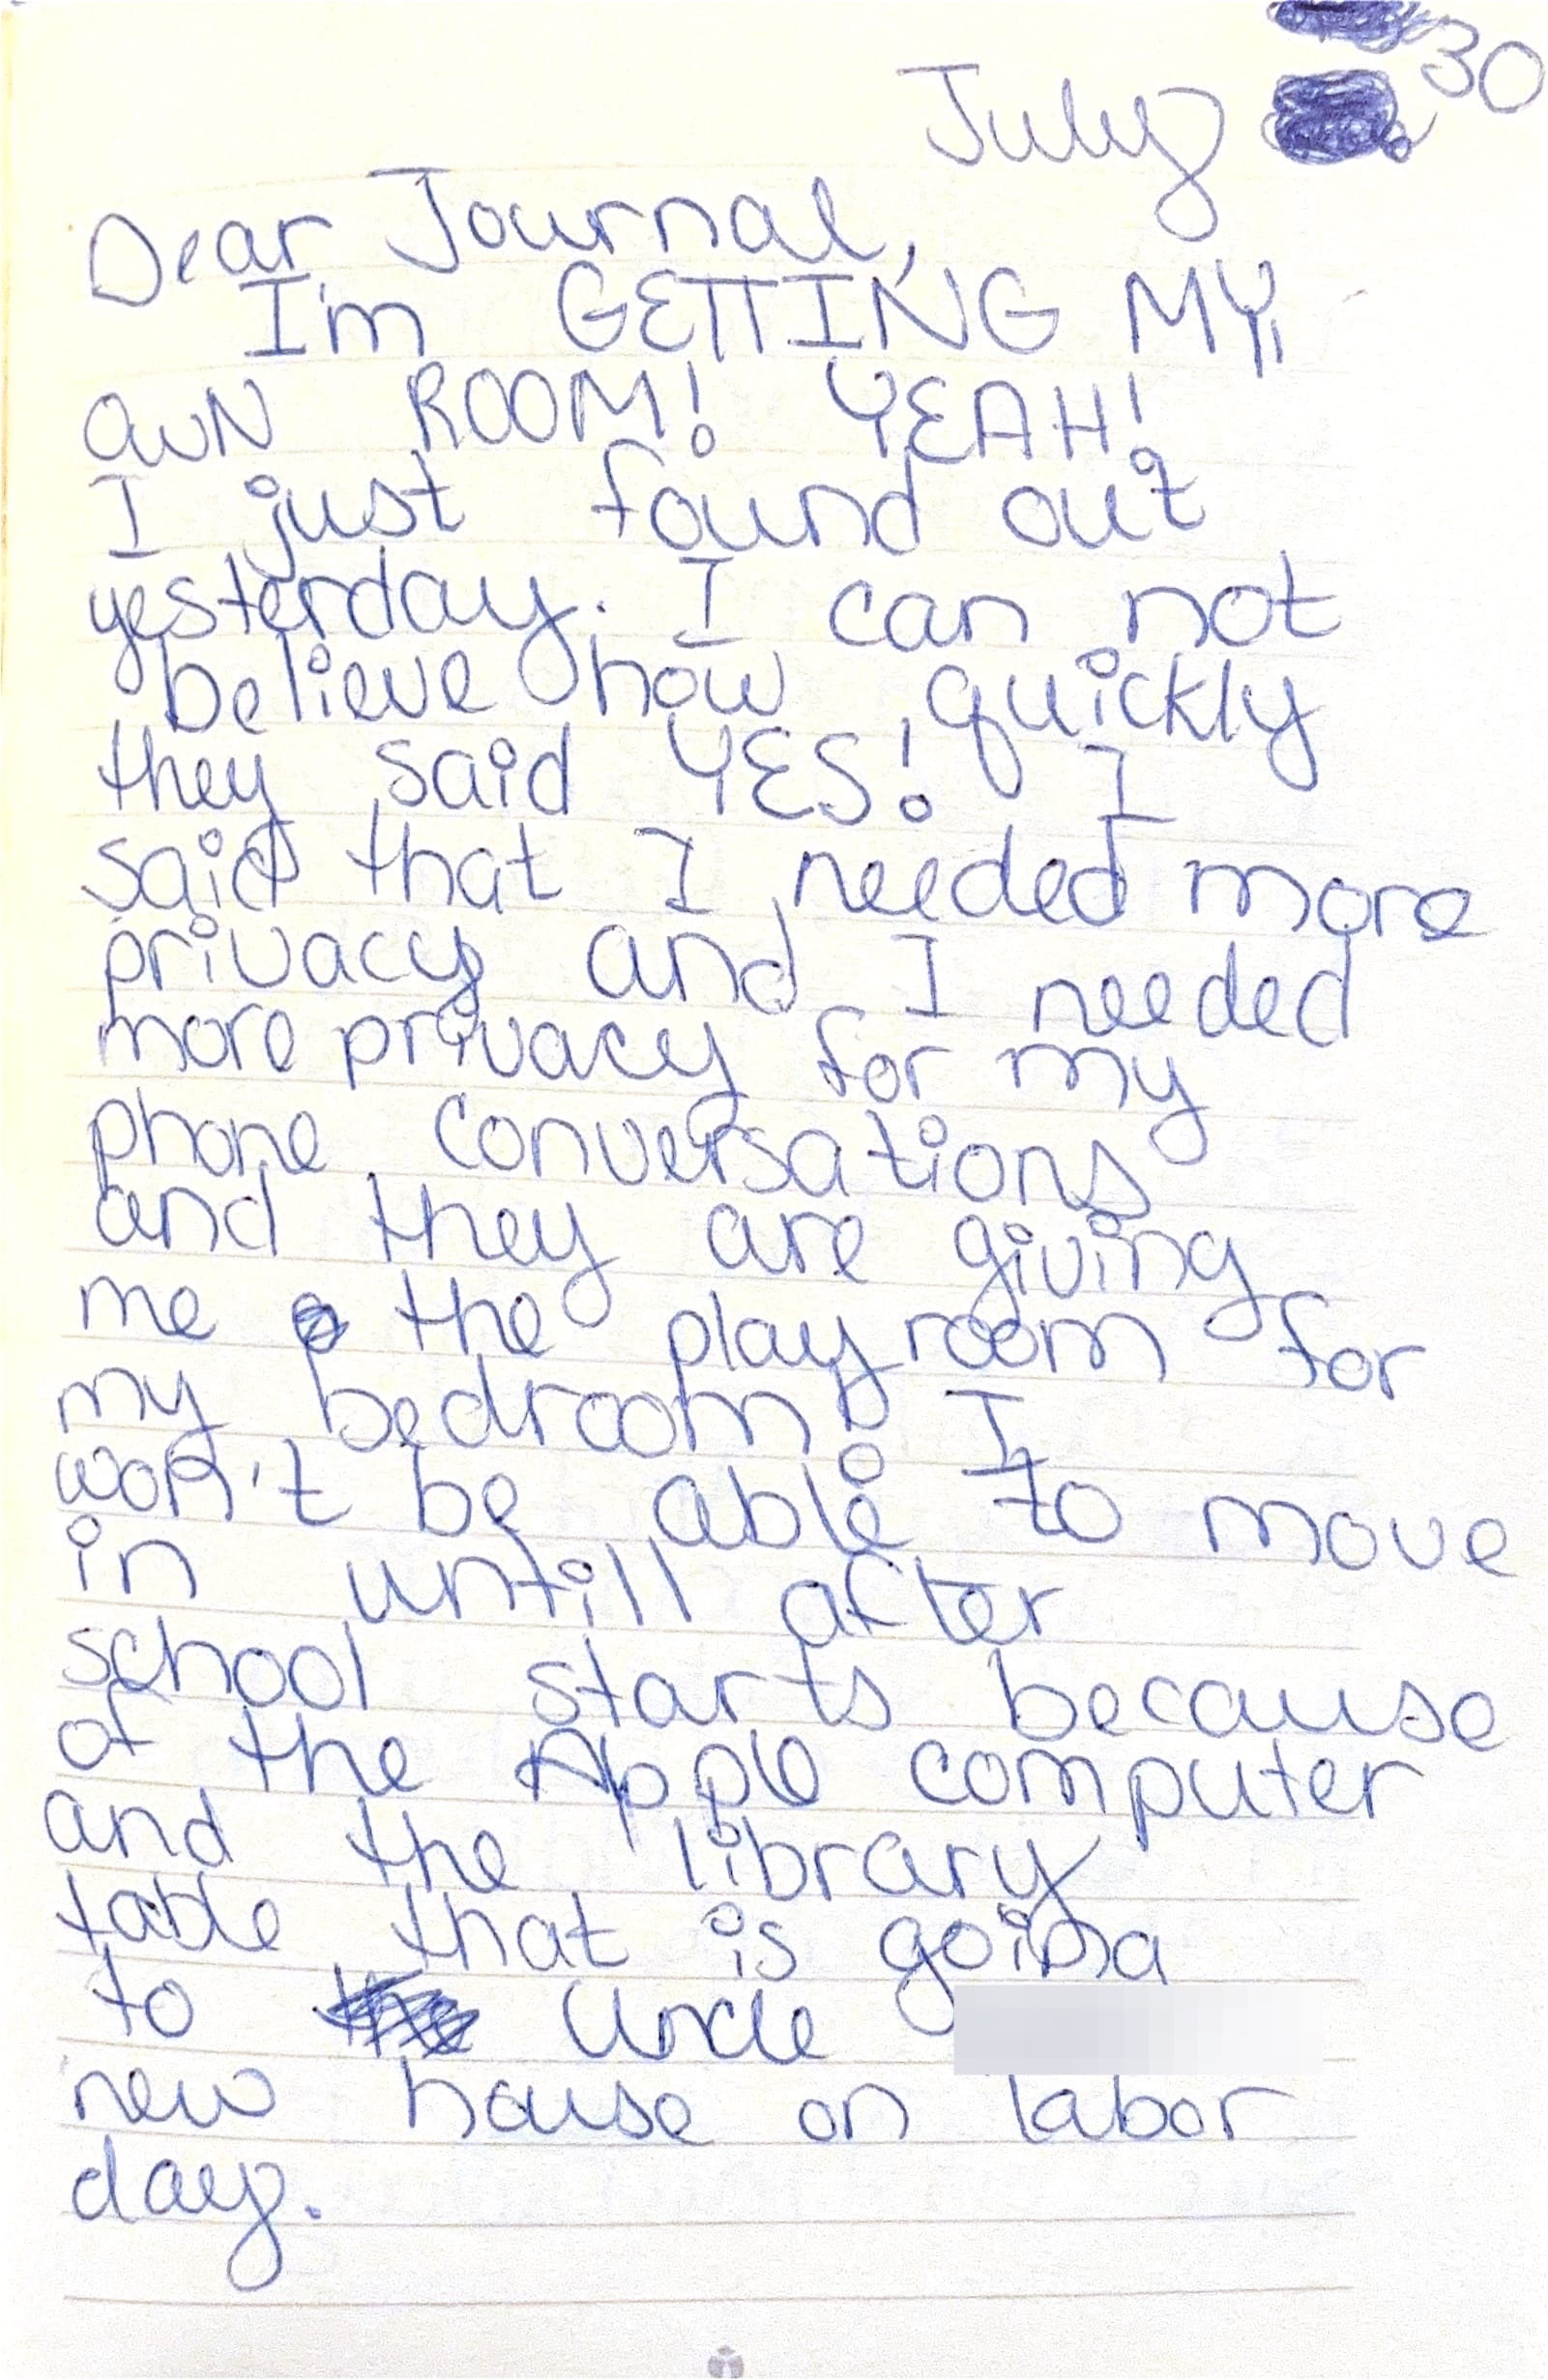 July 30
Dear Journal,
I'm GETTING MY
OWN ROOM! YEAH!
I just found out
yesterday. I can not
believe how quickly
they said YES! I
said that I needed more
privacy and I needed
more privacy for my
phone conversations
and they are giving
me the playroom for
my bedroom! I
won't be able to move
in untill after
school starts because
of the Apple computer
and the library
table that is going
to Uncle
new house on labor
day.